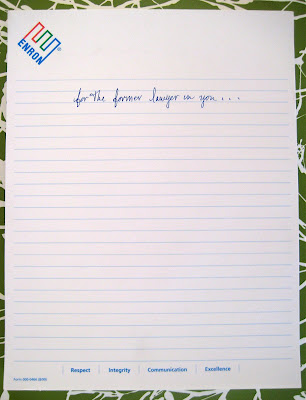 ENRON
for the former lawyer in you . . .
Respect | Integrity | Communication | Excellence